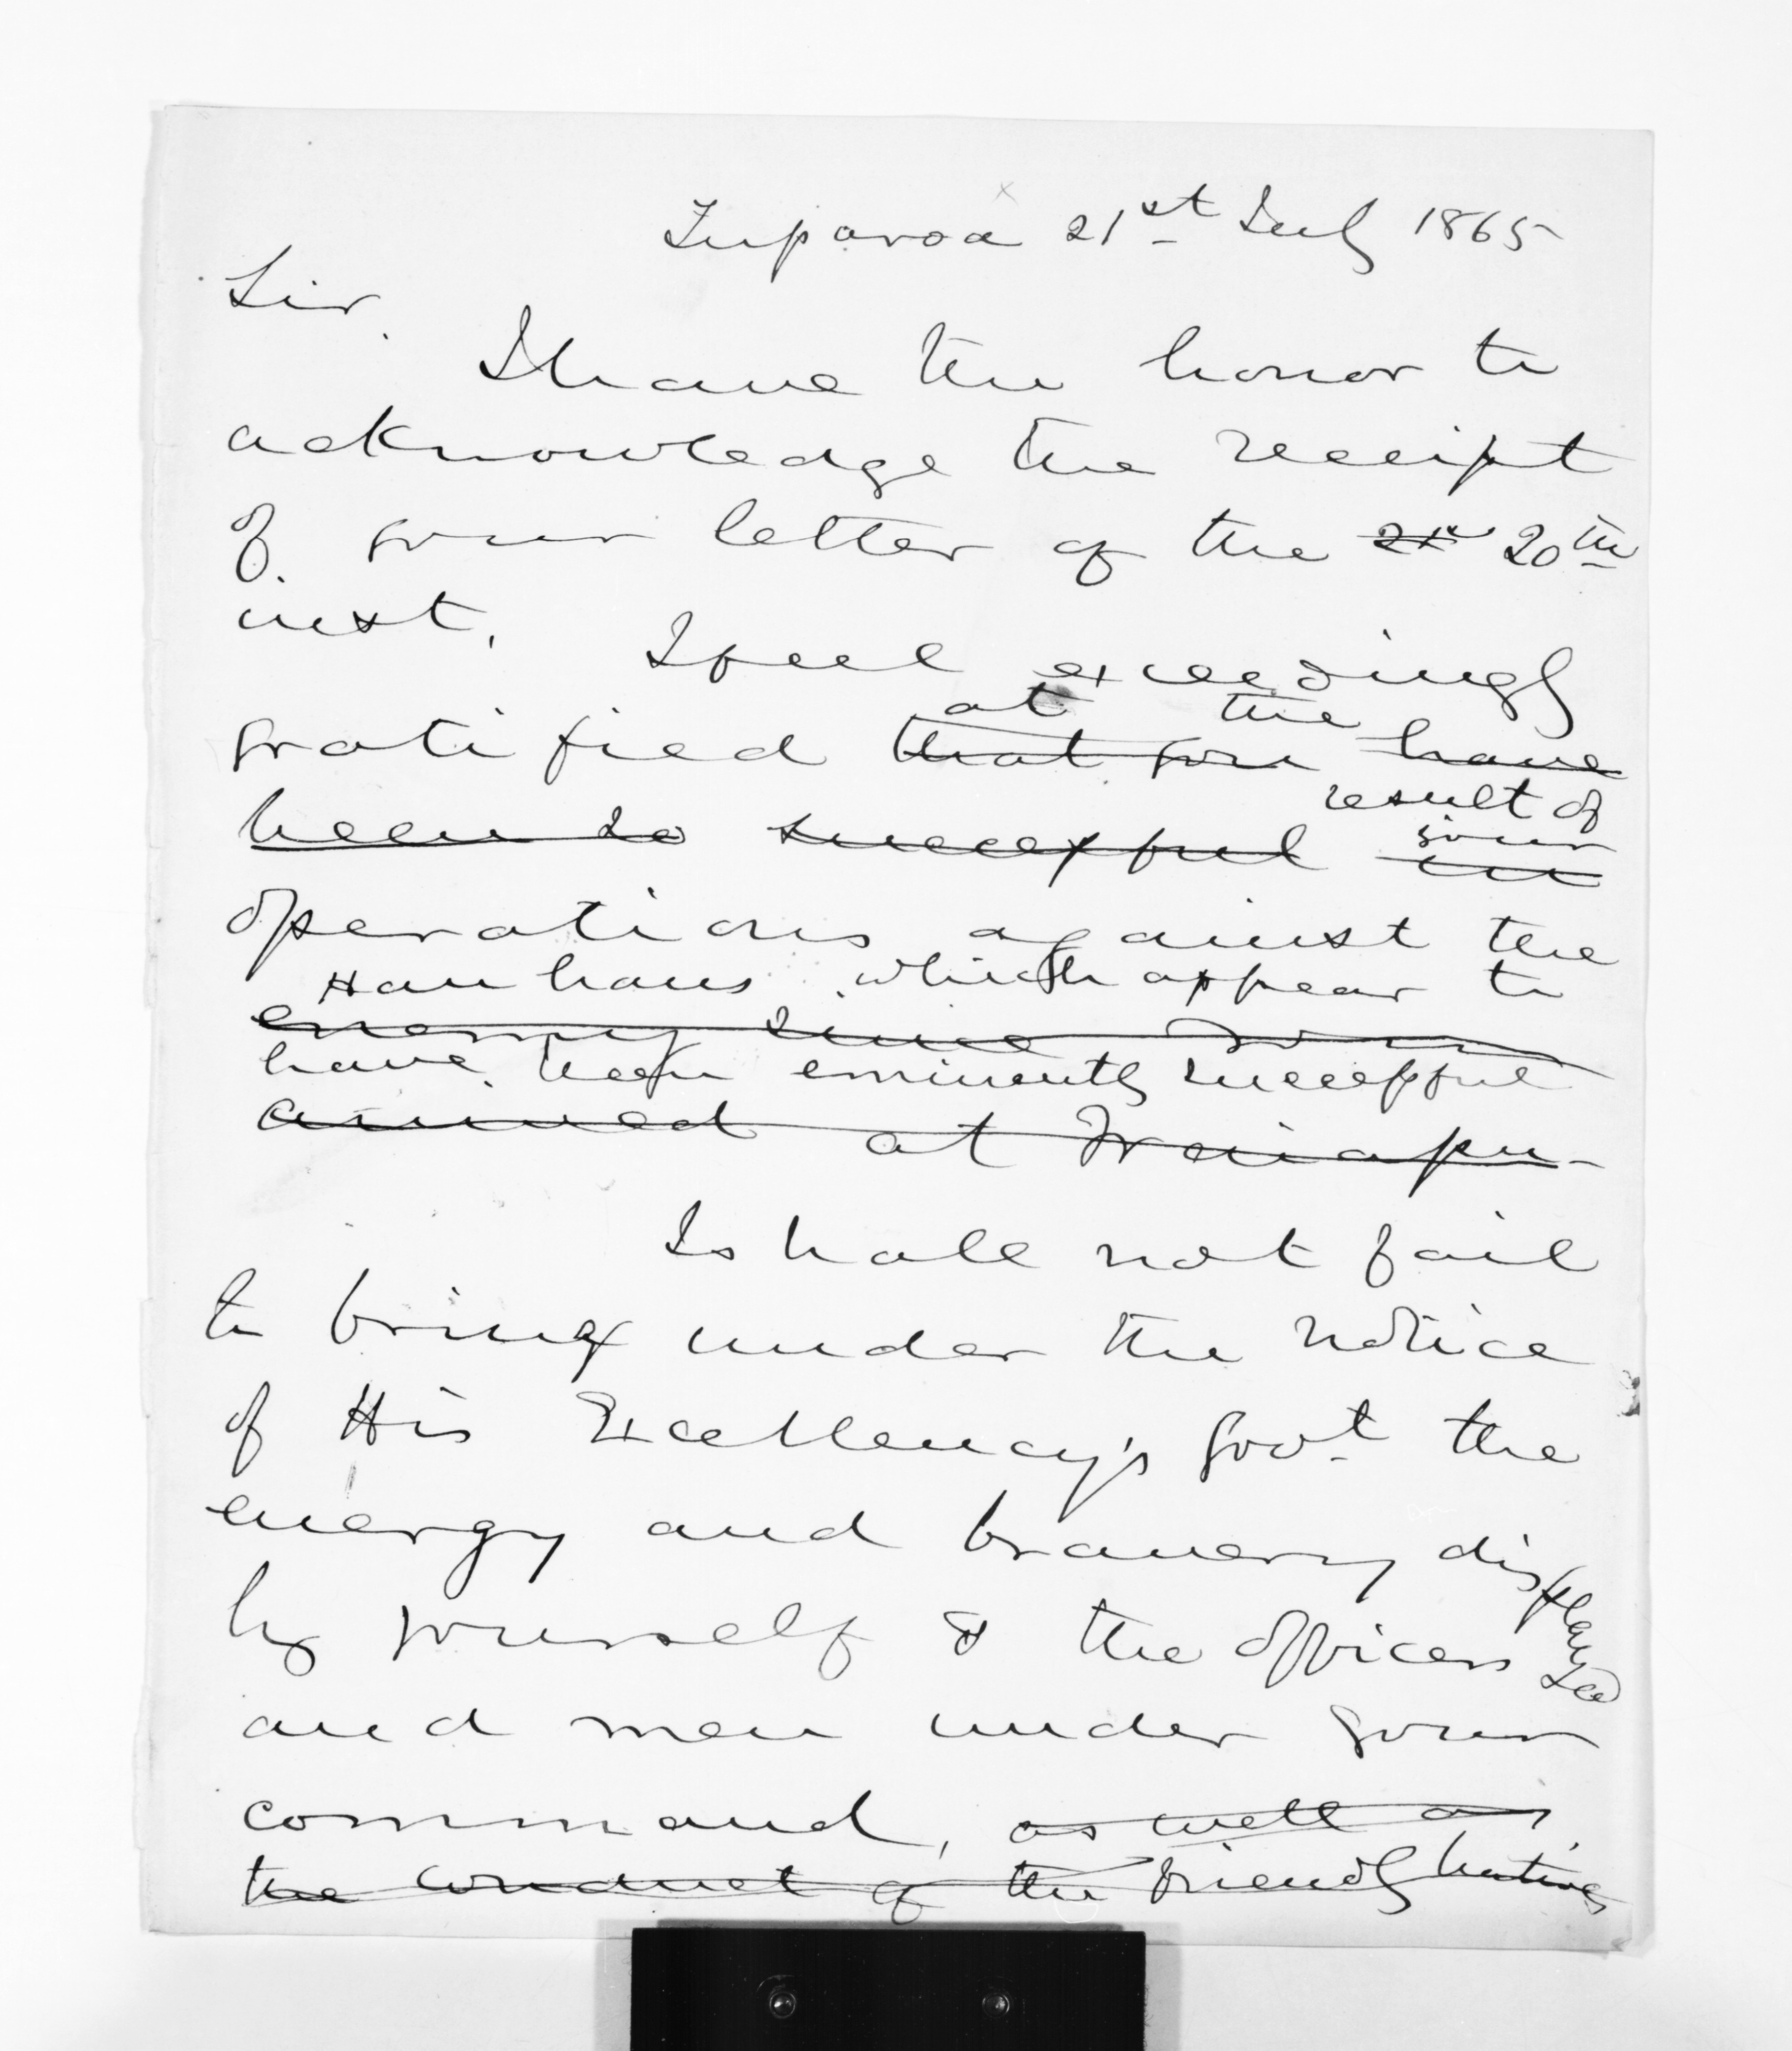 Tuparoa 21st July 1865
Sir.
I have the honor to
acknowledge the receipt
of your letter of the 21st 20th
inst. I feel exceedingly
at the
gratified that you have
result of
been so successful your
in
operations against the
Hau haus which appear to
enemy since you
have been eminently successful
arrived at Waiapu
I shall not fail
to bring under the notice
of His Excellency's Govt the
energy and bravery displayed
by yourself & the officers
and men under your
command, as well as
the conduct of the friendly natives